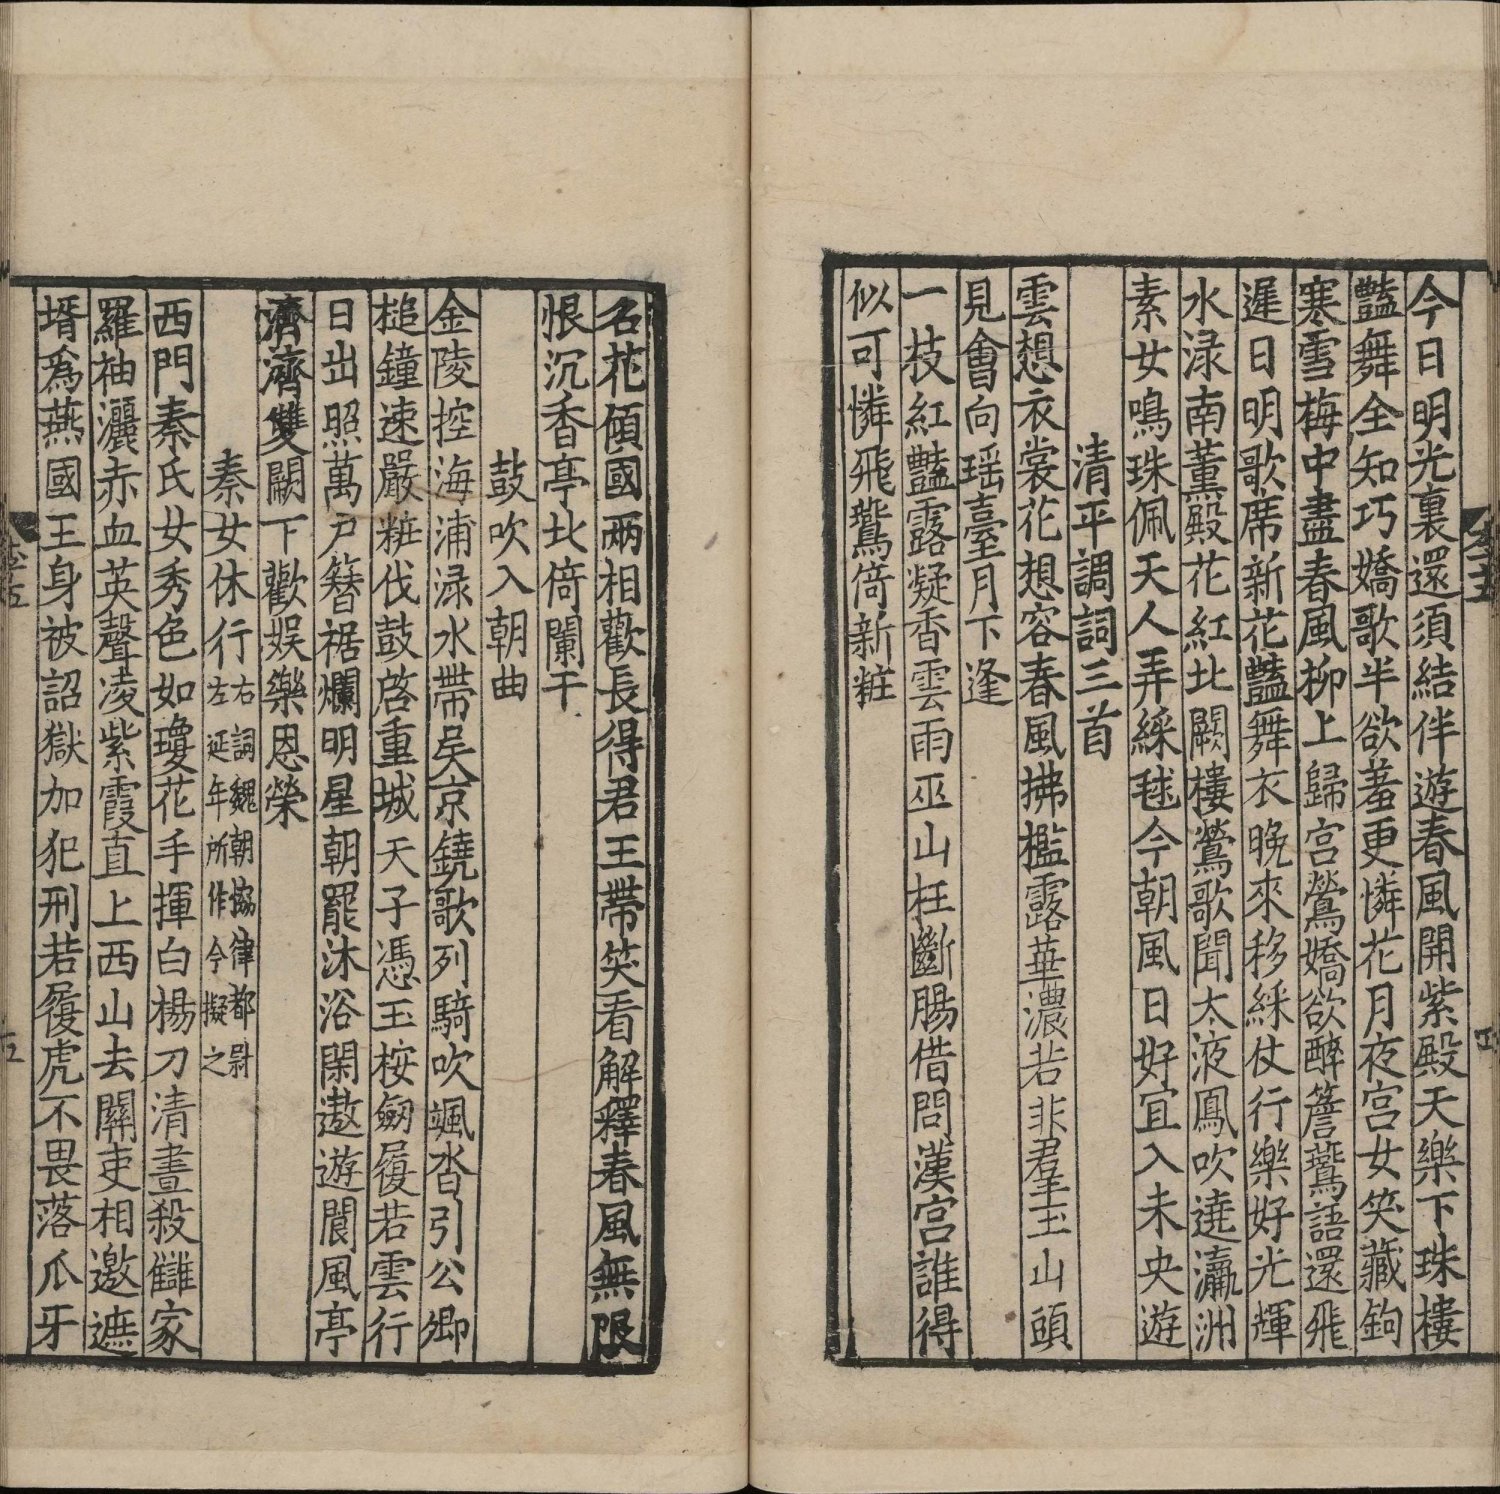 今日明光裏還須結伴遊春風開紫殿天樂下珠樓
豔舞全知巧嬌歌半欲羞更憐花月夜宫女笑藏鉤
寒雪梅中盡春風柳上歸宫鶯嬌欲醉簷鷰語還飛
遲日明歌席新花豔舞衣晚來移綵仗行樂好光輝
水渌南薰殿花紅北闕樓鶯歌聞太液鳳吹遶瀛洲
素女鳴珠佩天人弄綵毬今朝風日好宜入未央遊
清平調詞三首
雲想衣裳花想容春風拂檻露華濃若非羣玉山頭
見會向瑶臺月下逢
一枝紅豔露凝香雲雨巫山枉斷腸借問漢宫誰得
似可憐飛鷰倚新粧
名花傾國兩相歡長得君王帶笑看解釋春風無限
恨沉香亭北倚闌干
鼓吹入朝曲
金陵控海浦渌水帶吴京鐃歌列騎吹颯沓引公卿
槌鐘速嚴粧伐鼓啓重城天子憑玉桉劒履若雲行
日出照萬戸簪裾爛明星朝罷沐浴閑遨遊閬風亭
濟濟雙闕下歡娱樂恩榮
秦女休行右詞魏朝協律都尉
左延年所作今擬之
西門秦氏女秀色如瓊花手揮白楊刀清晝殺讎家
羅袖灑赤血英聲凌紫霞直上西山去關吏相邀遮
壻爲燕國王身被詔獄加犯刑若履虎不畏落爪牙